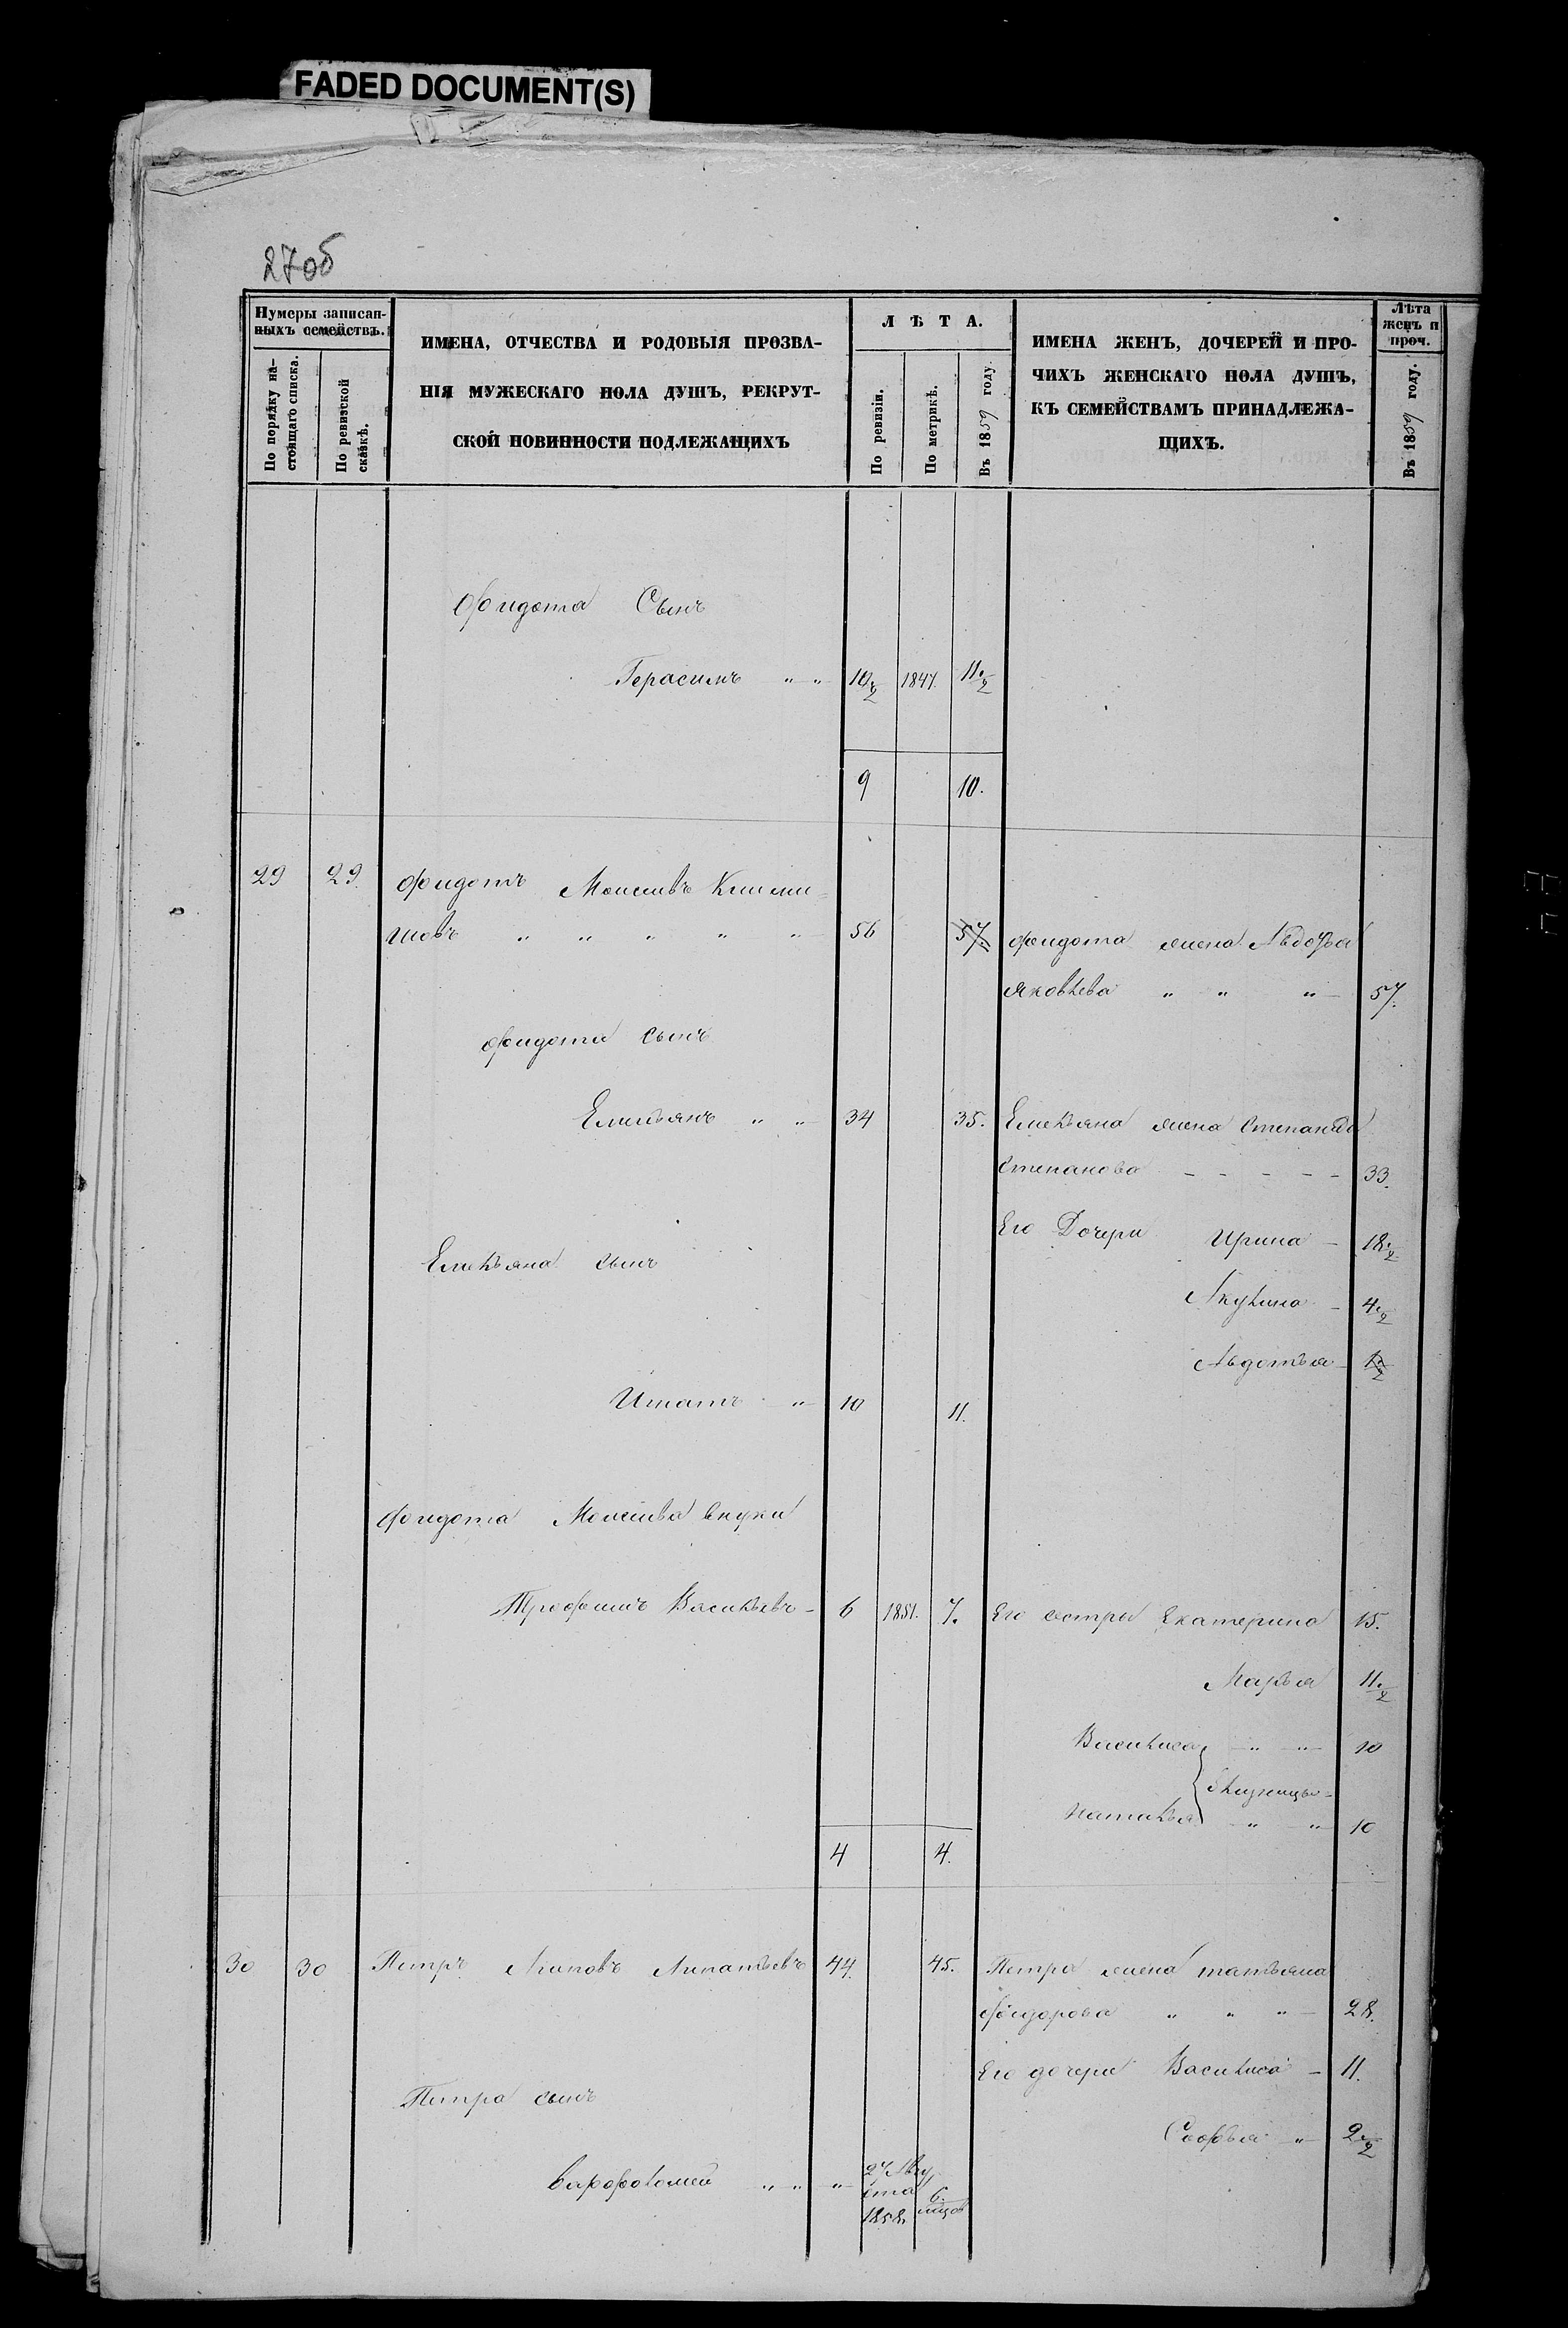 FADED DOCUMENT(S)
27об
Нумеры записан-
ныхъ семействъ.
По порядку на-
стоящаго списка.
По ревизской
сказкѣ.
ИМЕНА, ОТЧЕСТВА И РОДОВЫЯ ПРОЗВА-
НІЯ МУЖЕСКАГО ПОЛА ДУШЪ, РЕКРУТ-
СКОЙ ПОВИННОСТИ ПОДЛЕЖАЩИХЪ
ЛѢТА.
По ревизіи.
По метрикѣ.
Въ 1859 году.
ИМЕНА ЖЕНЪ, ДОЧЕРЕЙ И ПРО-
ЧИХЪ ЖЕНСКАГО ПОЛА ДУШЪ,
КЪ СЕМЕЙСТВАМЪ ПРИНАДЛЕЖА-
ЩИХЪ.
Лѣта
женъ и
проч.
Въ 18 году.
Фидота Сынъ
Герасимъ " " 10½ 1847. 11½
9 10.
29 29. Фидотъ Моисеивъ
шовъ " " " " " 56 57. Фидота жена Авдотья
Яковлева " " " 57.
Фидота сынъ
Емельянъ " " 34 35. Емельяна жена Степанида
Степанова - - - - - 33.
Его Дочери Ирина - 18½
Емельяна сынъ
Акулина - 4½
Авдотья - ½
Ипатъ " 10 11.
Фидота Моисеива внуки
Трофимъ Васильевъ - 6 1851. 7. Его сестры Екатерина 15.
Марья 11½
Василиса " " 10
близнецы
Наталья " " 10
4 4.
30 30 Петръ Агиповъ Липатьевъ 44. 45. Петра жена татьяна
Фидорова " " " 28.
Его дочери Василиса - 11.
Петра сынъ
Софья " 2½
Варфоломей " " " 27 Авгу
ста 6.
1858. мцов